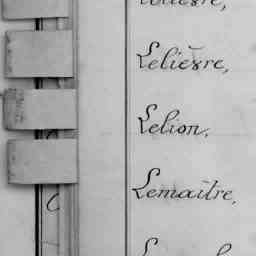 Lelièvre,
Lelion,
Lemaître,